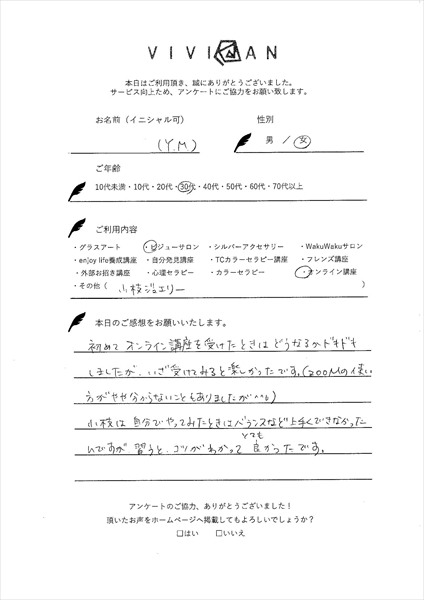 VIVIAN
本日はご利用頂き、誠にありがとうございました。
サービス向上ため、アンケートにご協力をお願い致します。
お名前(イニシャル可) 性別
(Y.M.) 男 / 女
ご年齢
10代未満・10代・20代・30代・40代・50代・60代・70代以上
ご利用内容
・グラスアート ・ビジューサロン ・シルバーアクセサリー ・WakuWakuサロン
・enjoy life養成講座 ・自分発見講座 ・TCカラーセラピー講座 ・フレンズ講座
・外部お招き講座 ・心理セラピー ・カラーセラピー ・オンライン講座
・その他( 小枝ジュエリー )
本日のご感想をお願いいたします。
初めて オンライン講座を受けたときは どうなるかドキドキ
しましたが、いざ受けてみると楽しかったです。(ZOOMの使い
方がやや分からないこともありましたが^^;)
小枝は 自分でやってみたときはバランスなど上手くできなかった
んですが、習うと、コツがわかって とても 良かったです。
アンケートのご協力、ありがとうございました!
頂いたお声をホームページへ掲載してもよろしいでしょうか?
□はい □いいえ